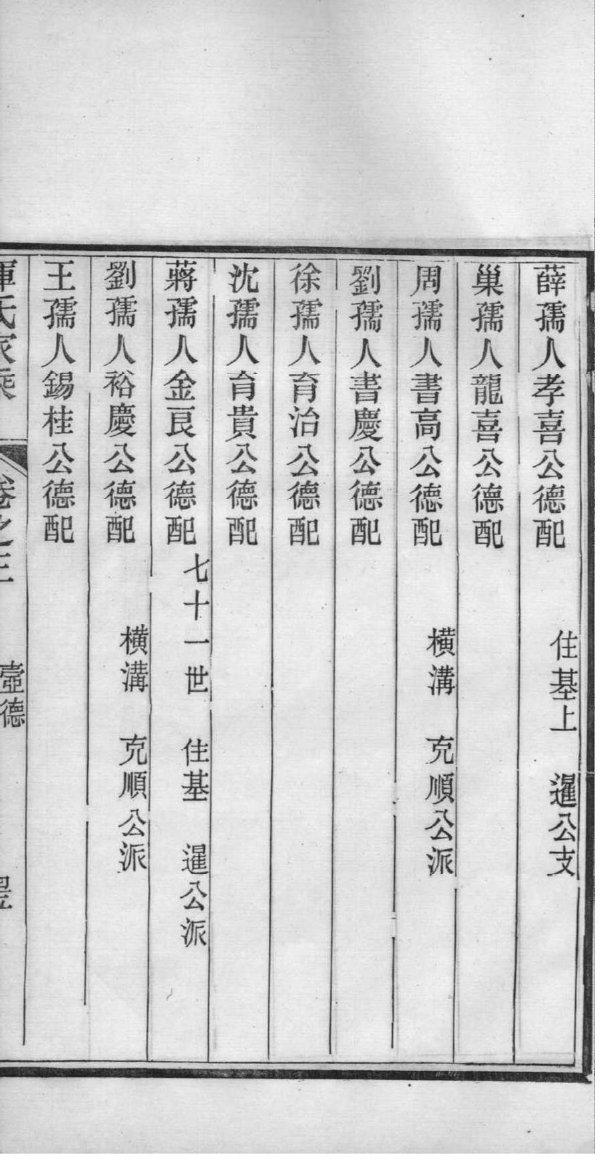 薛孺人孝喜公德配　住基上　暹公支
巢孺人龍喜公德配
周孺人書高公德配　橫溝　克順公派
劉孺人書慶公德配
徐孺人育治公德配
沈孺人育貴公德配
蔣孺人金良公德配　七十一世　住基　暹公派
劉孺人裕慶公德配　橫溝　克順公派
王孺人錫桂公德配
惲氏家乘　卷之三　壼德